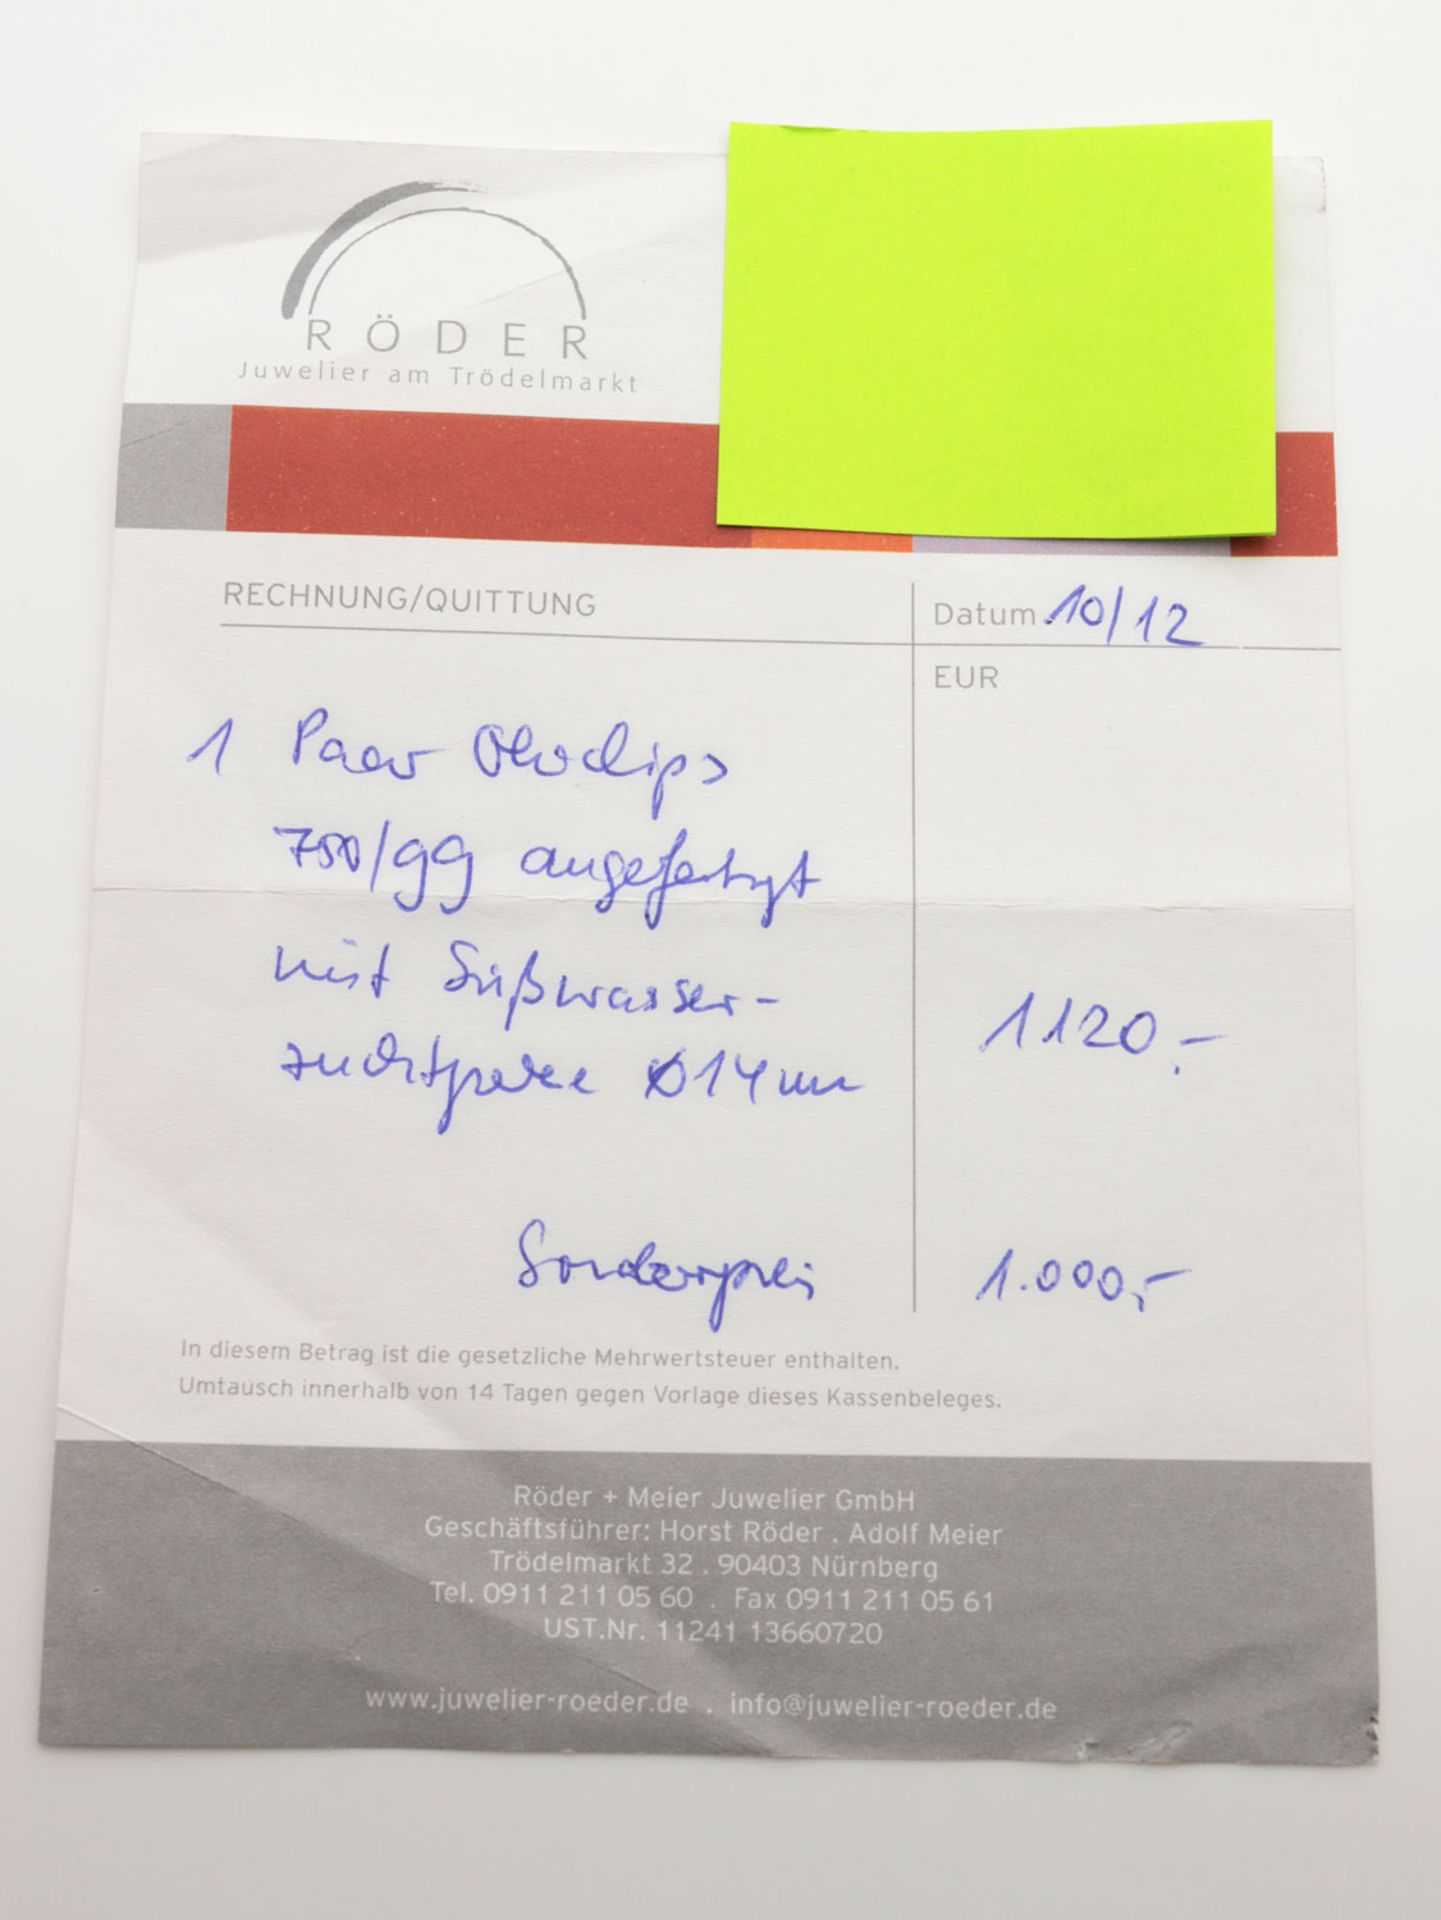 RÖDER
Juwelier am Trödelmarkt
RECHNUNG/QUITTUNG
Datum 10/12
EUR
1 Paar Ohrclips
750/GG angefertigt
mit Süßwasser-
zuchtperle Ø14mm 1120,-
Sonderpreis 1.000,-
In diesem Betrag ist die gesetzliche Mehrwertsteuer enthalten.
Umtausch innerhalb von 14 Tagen gegen Vorlage dieses Kassenbeleges.
Röder + Meier Juwelier GmbH
Geschäftsführer: Horst Röder . Adolf Meier
Trödelmarkt 32 . 90403 Nürnberg
Tel. 0911 211 05 60 . Fax 0911 211 05 61
UST.Nr. 11241 13660720
www.juwelier-roeder.de . info@juwelier-roeder.de